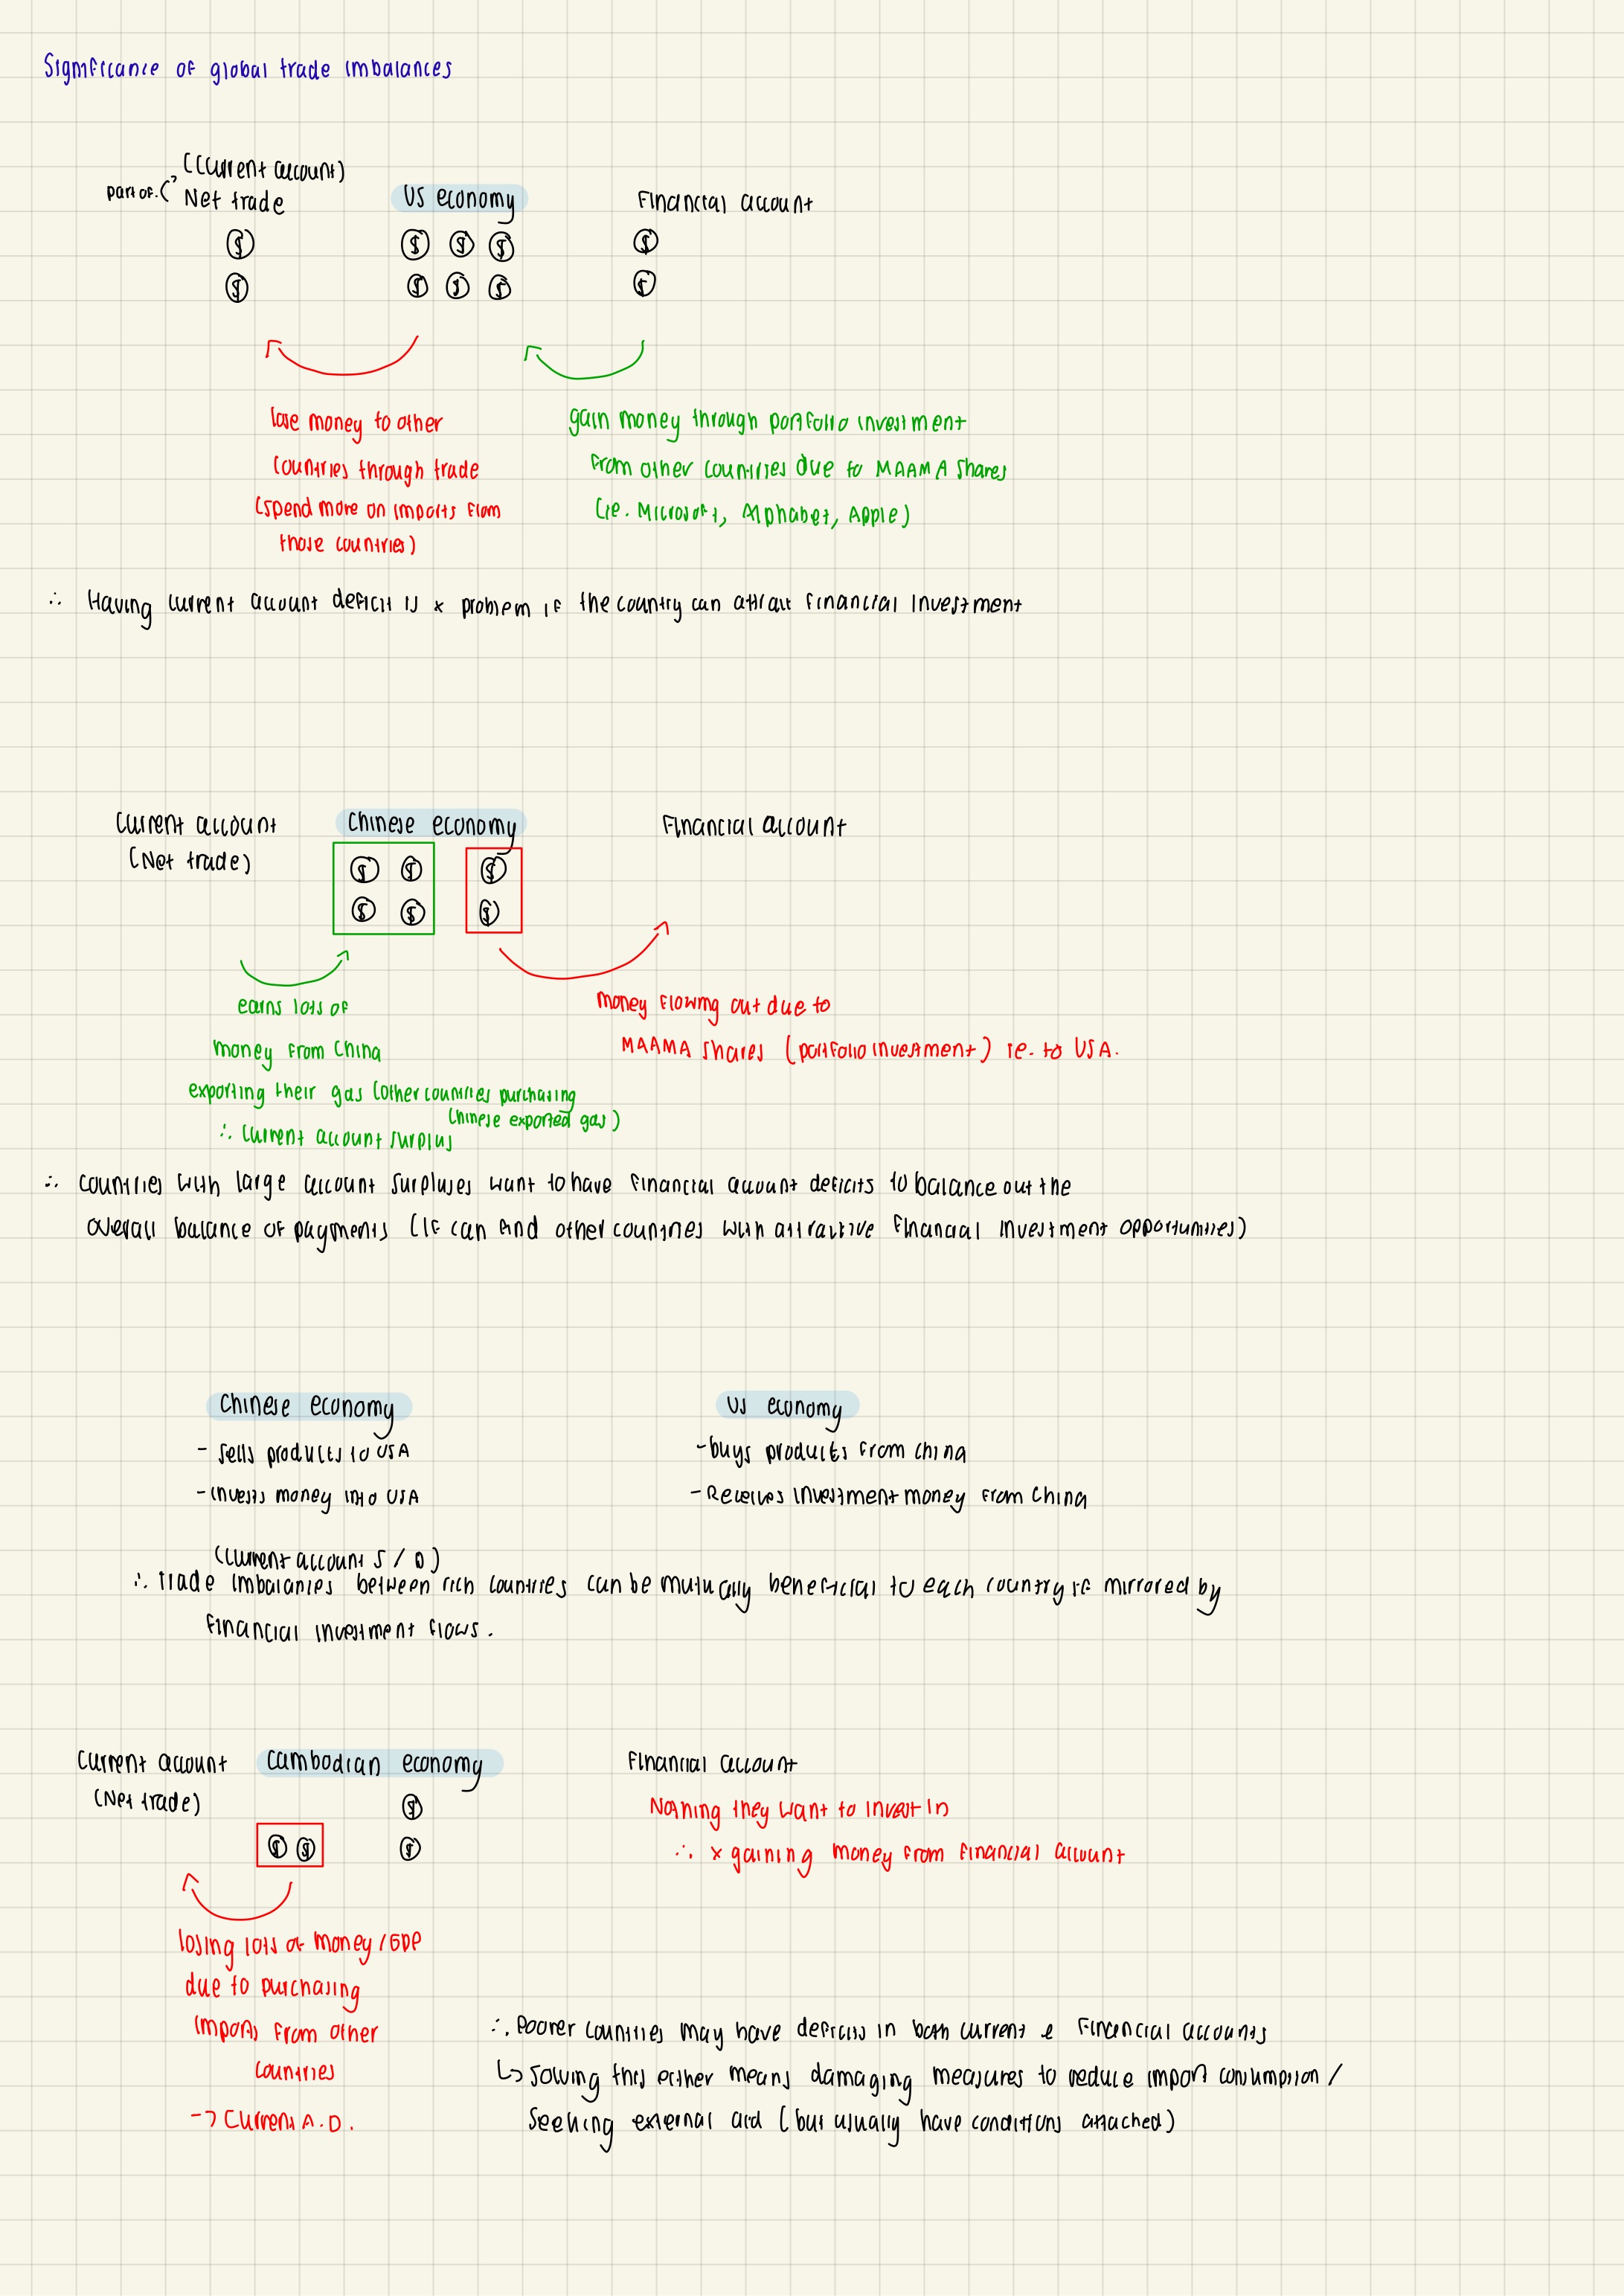 Significance of global trade imbalances
(Current account)
part of
Net trade
US economy
Financial account
$ $ $ $ $
$ $ $ $ $
lose money to other
countries through trade
(spend more on imports from
those countries)
gain money through portfolio investment
from other countries due to MAAMA shares
(ie. Microsoft, Alphabet, Apple)
∴ Having current account deficit is × problem if the country can attract financial investment
Current account
(Net trade)
Chinese economy
Financial account
$ $ $
$ $ $
earns lots of
money from China
exporting their gas (other countries purchasing
Chinese exported gas)
∴ Current account surplus
money flowing out due to
MAAMA shares (portfolio investment) ie. to USA.
∴ countries with large account surpluses want to have financial account deficits to balance out the
overall balance of payments (if can find other countries with attractive financial investment opportunities)
Chinese economy
- Sells products to USA
- Invests money into USA
US economy
- buys products from china
- Receives investment money from China
(current account S / D)
∴ Trade imbalances between rich countries can be mutually beneficial to each country if mirrored by
financial investment flows.
Current account
(Net trade)
Cambodian economy
Financial account
$
$ $ $
Nothing they want to invest in
∴ × gaining money from financial account
losing lots of money / GDP
due to purchasing
imports from other
countries
→ Current A.D.
∴ Poorer countries may have deficits in both current & financial accounts
↳ Solving this either means damaging measures to reduce import consumption /
seeking external aid (but usually have conditions attached)